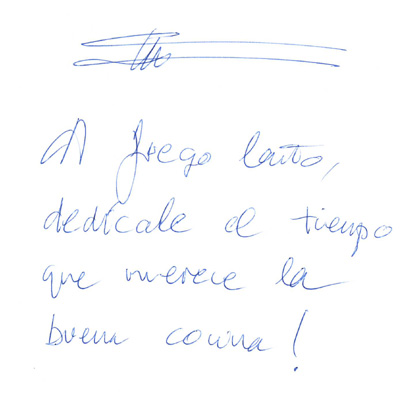 A fuego lento,
dedícale el tiempo
que merece la
buena cocina!